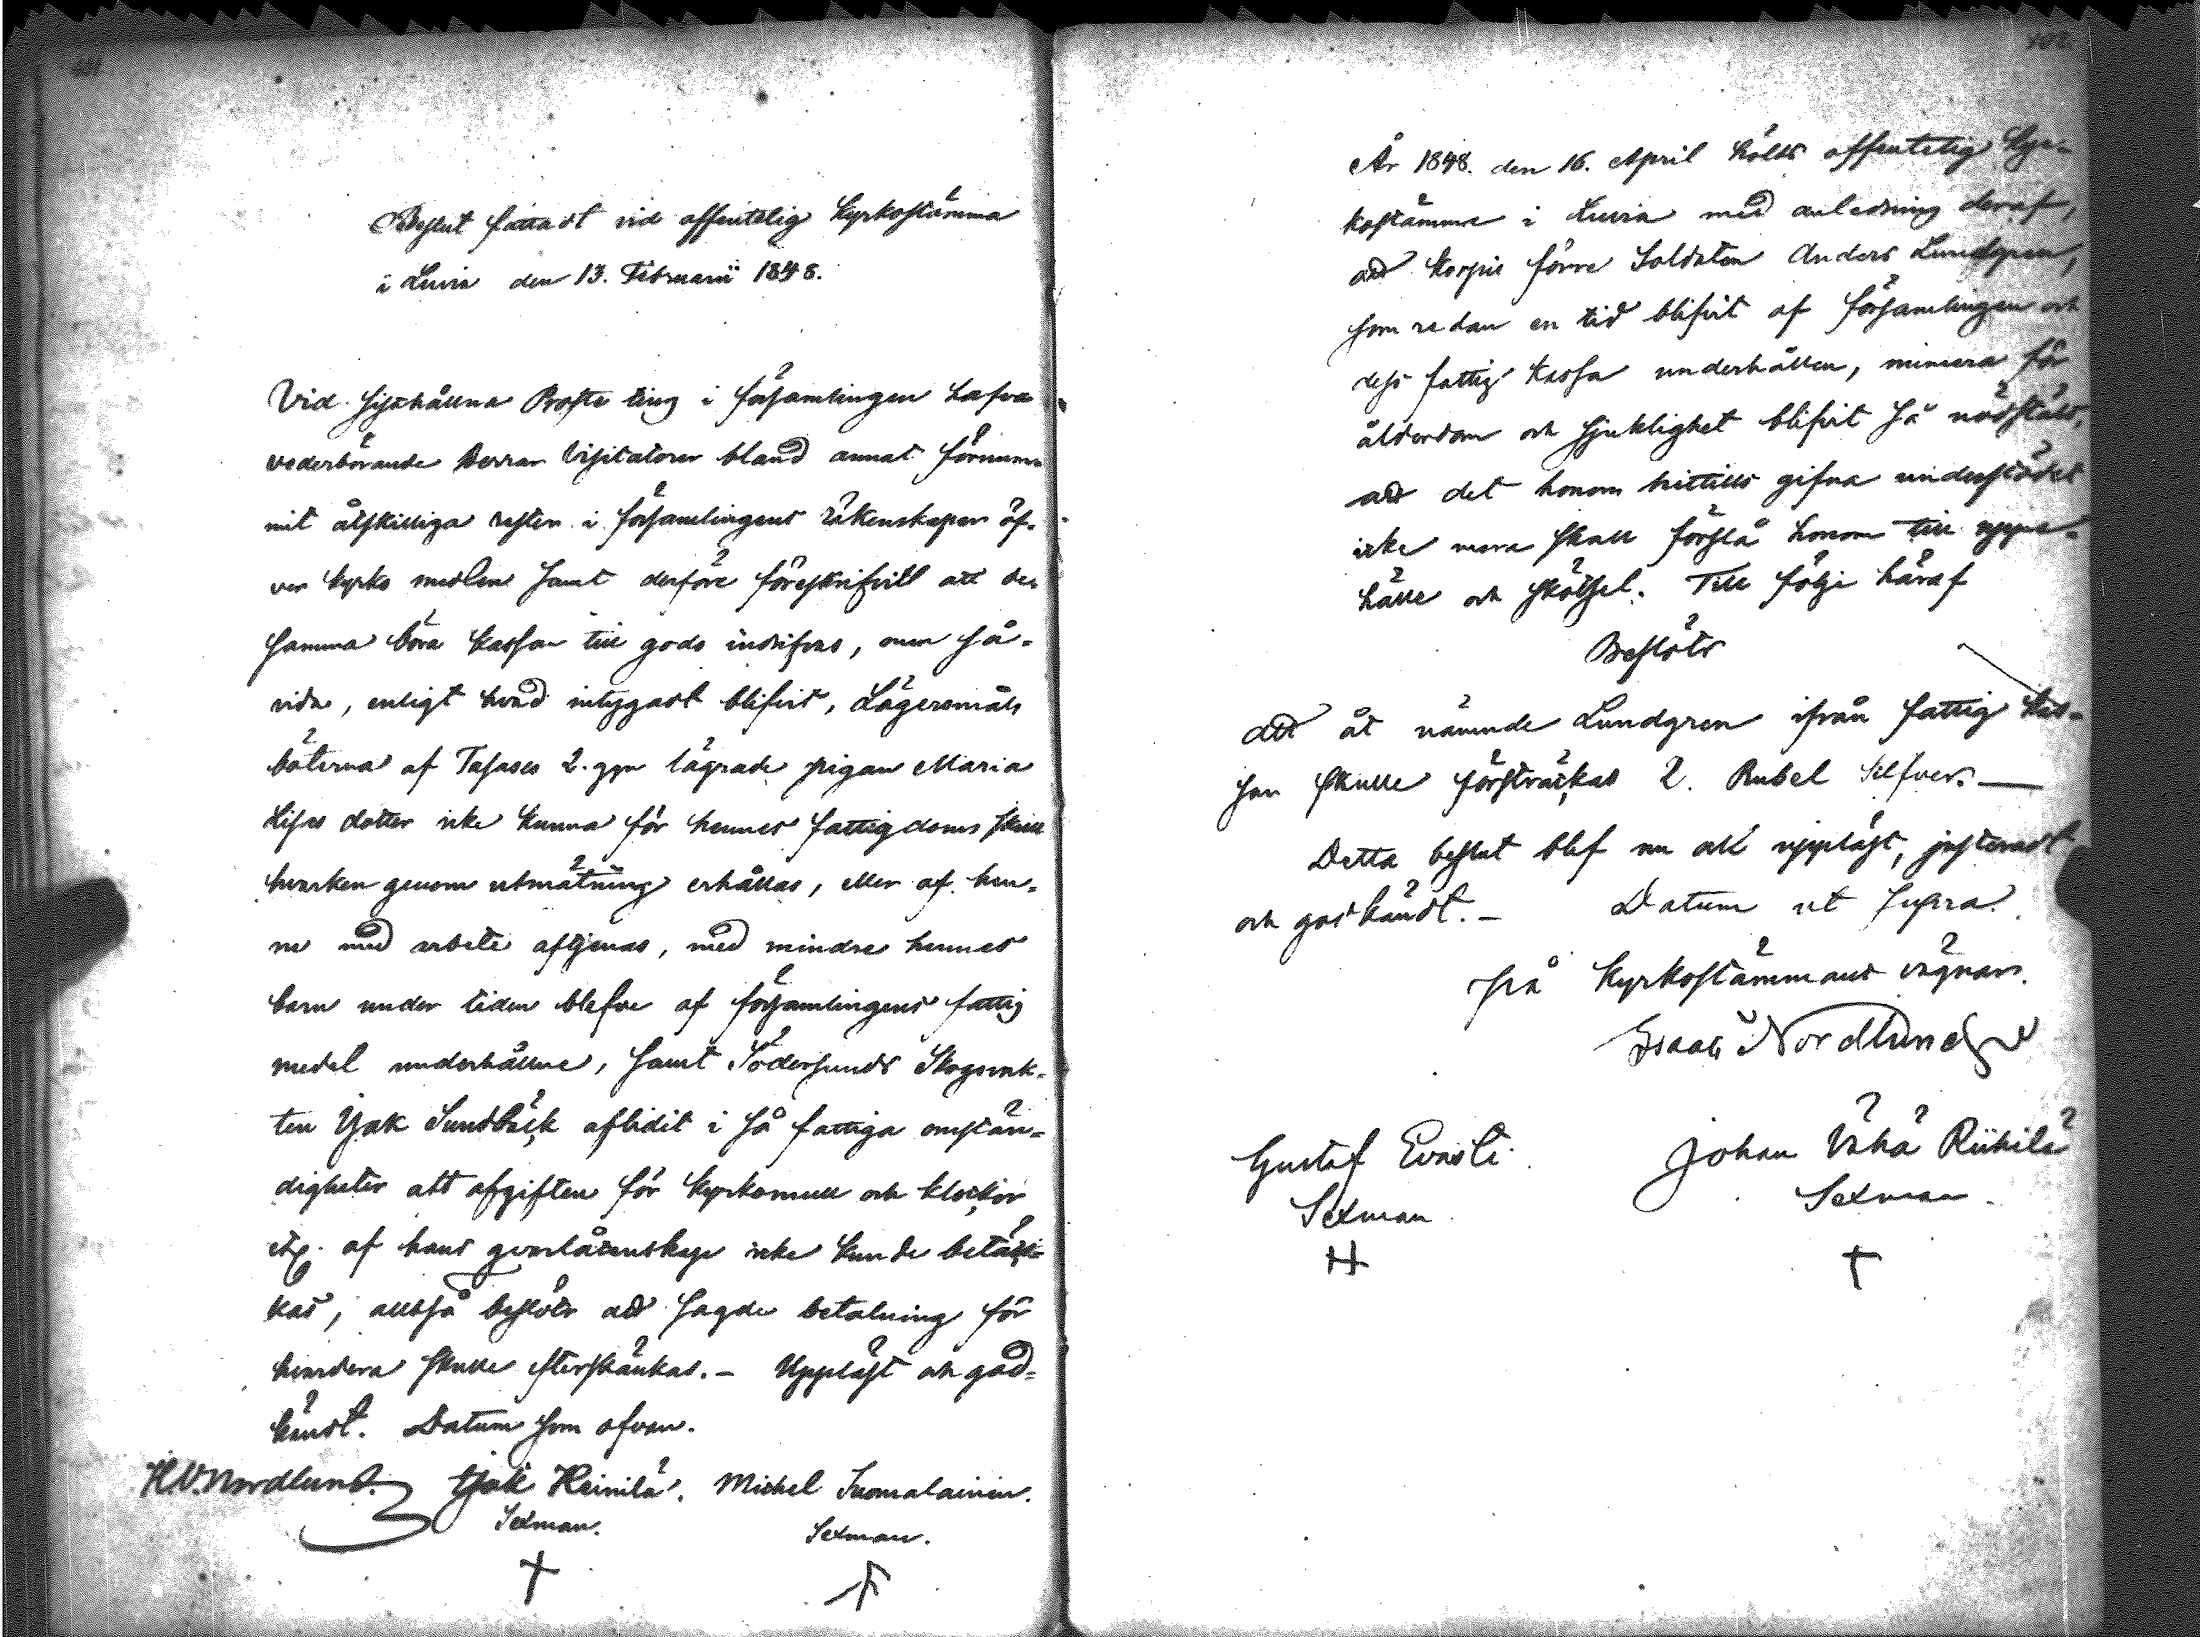 Beslut fattadt vid offentelig Kyrkostämma
i Luvia den 13. Februarii 1848.
Vid sisthållna Proste ting i församlingen hafva
vederbörande Herrar Visitatorer bland annat förnum=
mit åtskilliga rester i församlingens räkenskaper öf=
ver kyrko medlen samt derföre föreskrifvit att de=
samma böra kassan till godo indrifvas, men så=
vida, enligt hvad intygadt blifvit, Lägersmåls
böterna af Tasases 2. ggr lägrade pigan Maria
Lisas dotter icke kunna för hennes fattigdoms skull
hvarken genom utmätning erhållas, eller af hen=
ne med arbete aftjenas, med mindre hennes
barn under tiden blefve af församlingens fattig
medel underhållne, samt Södersunds Skogsvak=
ten Isak Sundbäck aflidit i så fattiga omstän=
digheter att afgiften för kyrkomull och klockor
etc. af hans qvarlåtenskap icke kunde betäck=
kas, alltså beslöts att sagde betalning för
hvardera skulle efterskänkas. – Uppläst och god=
kändt. Datum som ofvan.
H.V. Nordlund. Isak Heinilä. Michel Suomalainen.
Sexman. Sexman.
102
År 1848. den 16. April hölls offentelig Kyr=
kostämma i Luvia med anledning deraf,
att Korpis förre Soldaten Anders Lundgren,
som redan en tid blifvit af församlingen och
dess fattig kassa underhållen, numera för
ålderdom och sjuklighet blifvit så nödstäld,
att det honom hittills gifna understödet
icke mera skall förslå honom till uppe=
hälle och skötsel. Till följe häraf
Beslöts
att åt nämnde Lundgren ifrån fattig kas=
san skulle försträckas 2. Rubel Silfver. —
Detta beslut blef nu ock uppläst, justeradt
och godkändt. – Datum ut supra.
på Kyrkostämmans vägnar.
Isaac Nordlund
Gustaf Evasti Johan Vähä Riihilä
Sexman Sexman
H